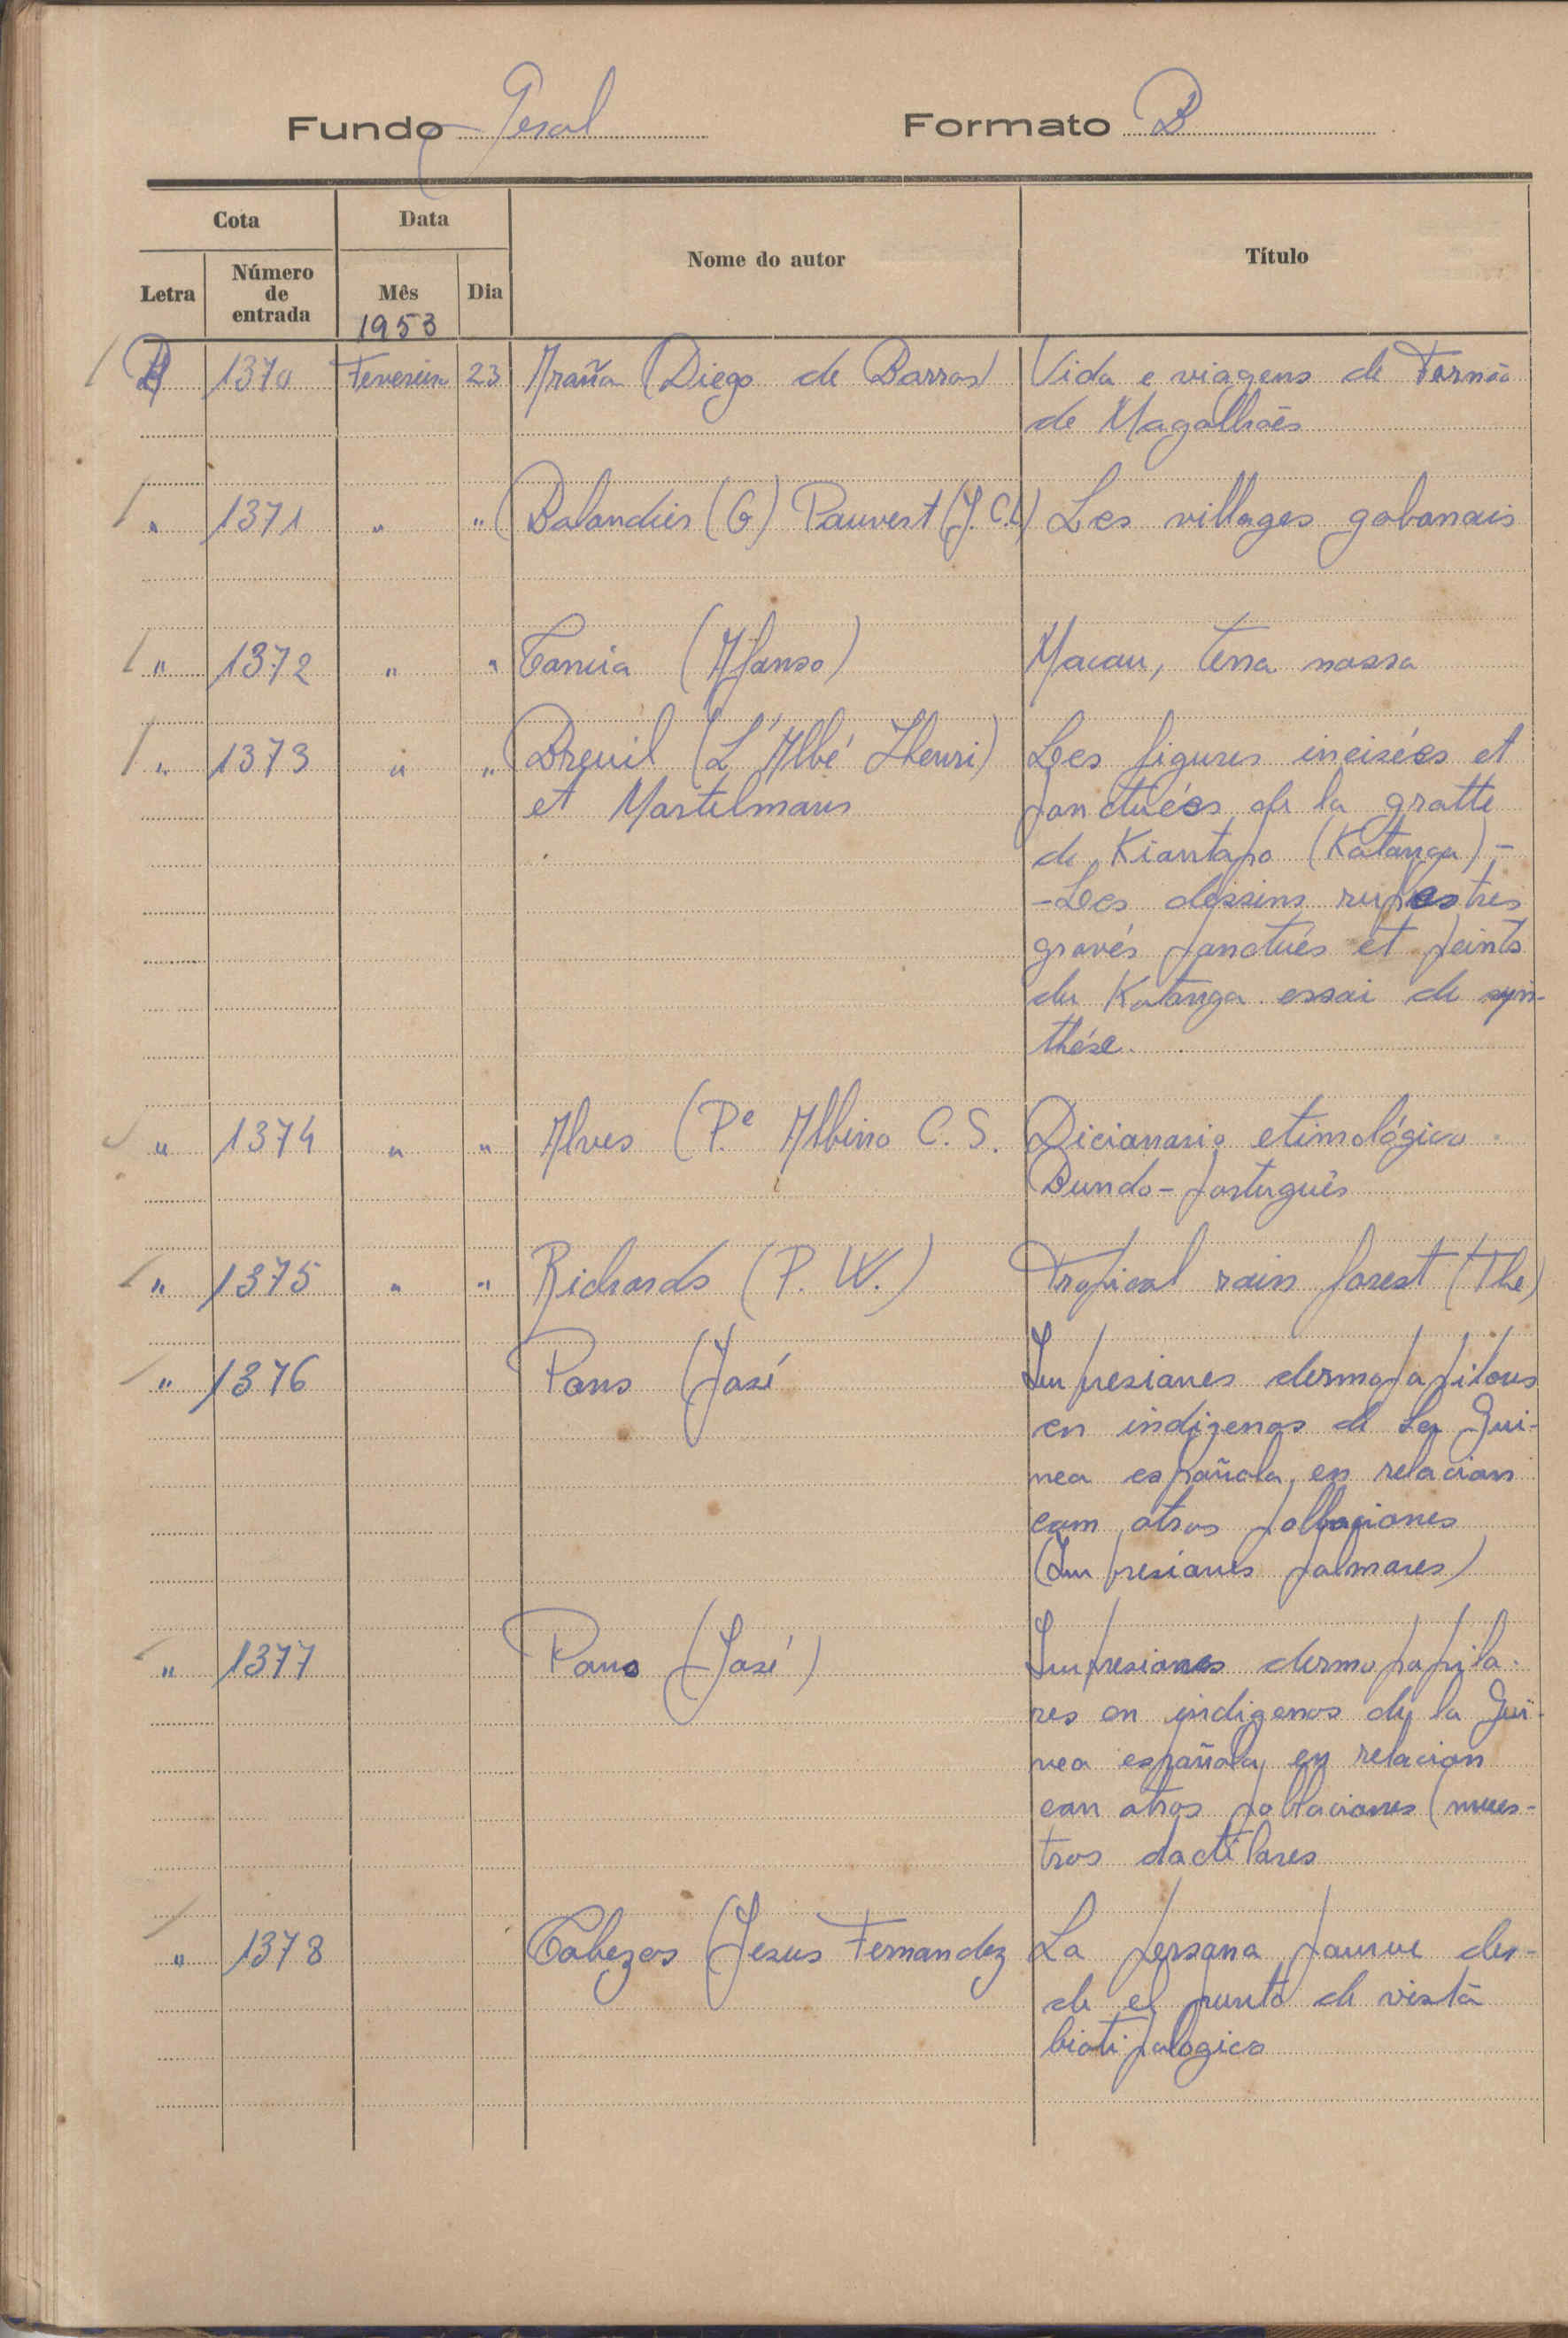 Fundo Geral Formato B
Cota Data Nome do autor Título
Letra Número de entrada Mês Dia
1953
B 1370 Fevereiro 23 Araña (Diego de Barros) Vida e viagens de Fernão
de Magalhães
" 1371 " " Balandier (G) Pauvert (J. C.) Les villages gabonais
" 1372 " " Correia (Afonso) Macau, terra nossa
" 1373 " " Breuil (L'Abbé Henri) Les figures incisées et
et Mortelmans ponctuées de la grotte
de Kiantapo (Katanga) -
- Les dessins rupestres
gravés ponctués et peints
du Katanga essai de syn-
thése.
" 1374 " " Alves (P.e Albino C. S. Dicionario etimológico
Bundo-português
" 1375 " " Richards (P. W.) Tropical rain forest (The)
" 1376 Pons (José Impresiones
en indigenas de la Gui-
nea española, en relacion
com otras poblaciones
(Impresiones palmares)
" 1377 Pons (José) Impresiones dermopapila-
res en indigenas de la Gui-
nea española, en relacion
con otras poblaciones (mues-
tras dactilares
" 1378 Cabezas (Jesus Fernandez La persona pamue des-
de el punto de vista
biotipologico